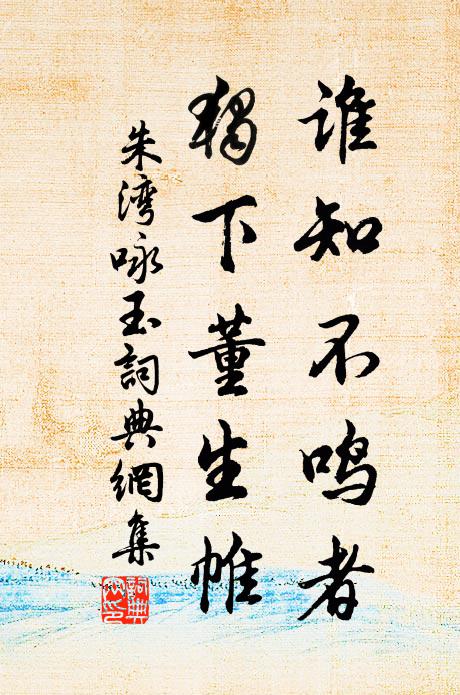 谁知不鸣者
獨下董生帷
朱湾咏玉詞典網集